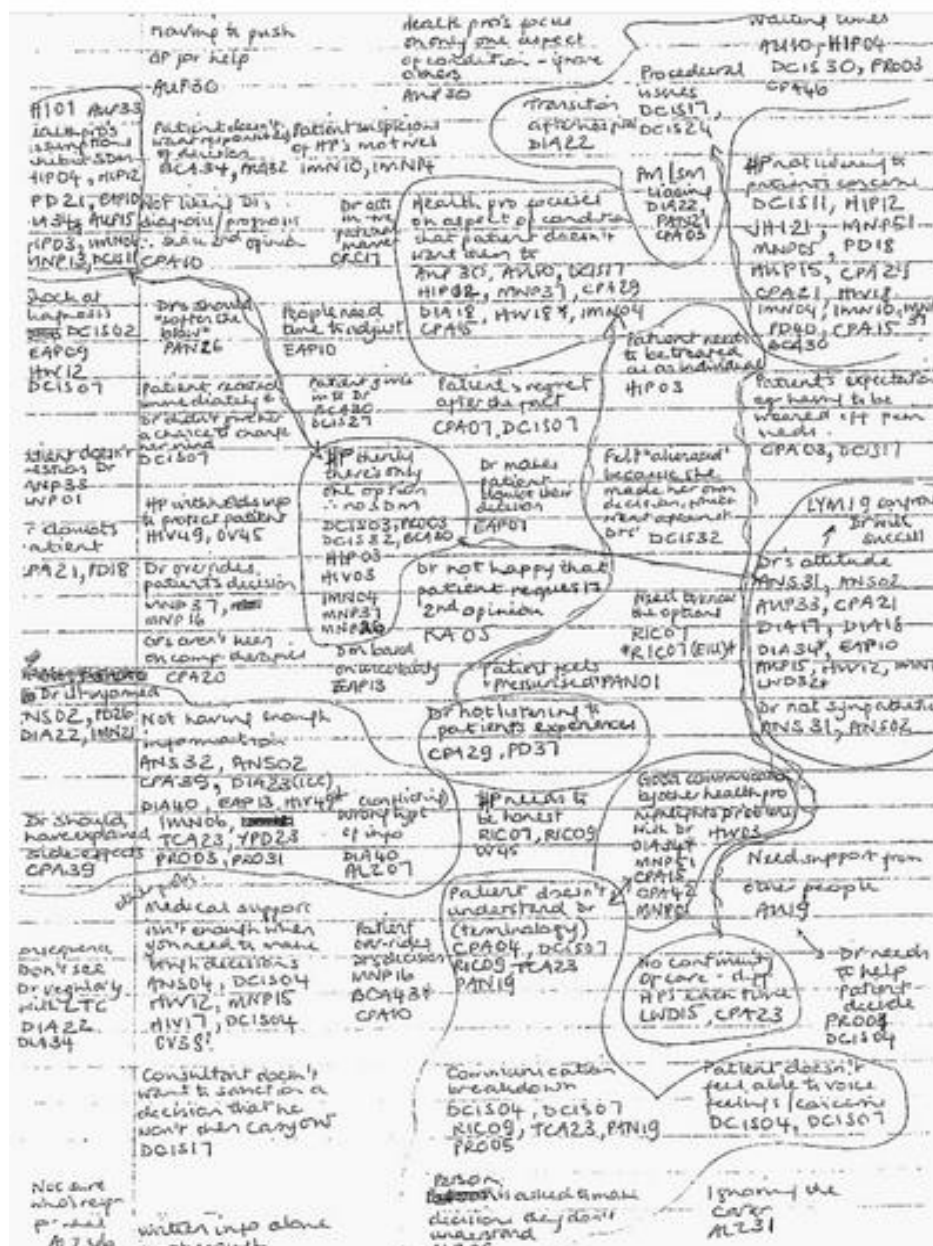 Having to push
GP for help
AUP30
Health pro's focus
on only one aspect
of condition - ignore
others
AUP30
Waiting times
AUP10, HIP04
DCIS30, PRO03
CPA46
Procedural
issues
DCIS17,
DCIS24
Transition
DIA22
AUP33
HIP04, HIP12
PD21, EAP10
AUP15
HIP03, IMN04
MNP13, DCIS11
Patient doesn't
want
of decision
BCA34,
Patient suspicious
of HP's motives
IMN10, IMN14
Not liking Dr's
diagnosis/prognosis
2nd opinion
CPA10
Dr acts
in
manner
ORC17
Health pro focuses
on aspect of condition
that patient doesn't
want them to
AUP30, AUP10, DCIS17
HIP02, MNP37, CPA29
DIA18, HIW18*, IMN04
CPA15
PM/SM
DIA22,
PAN21
CPA03
HP not listening to
patient's concerns
DCIS11, HIP12
MNP51
MNP05, PD18
AUP15, CPA25
CPA21, HIW18
IMN04, IMN10,
PD40, CPA15
BCA30
Shock at
diagnosis
DCIS02
EAP09
HIW12
DCIS07
Drs should
"soften the
blow"
PAN26
People need
time to adjust
EAP10
Patient needs
to be treated
as an individual
HIP03
Patient reacted
immediately &
Dr didn't give her
a chance to change
her mind
DCIS07
Patient gives
in to Dr
BCA30
DCIS27
Patient's regret
after the fact
CPA07, DCIS07
Patient's expectation
eg having to be
weaned off pain
meds.
CPA03, DCIS17
HP thinks
there's only
one option
∴ no SDM
DCIS03, PRO03
DCIS32, BCA30
HIP03
HIV03
IMN04
MNP37
MNP26
Dr makes
patient
doubt their
decision
EAP07
Felt
because she
made her own
decision, which
went against
Drs'
DCIS32
HP withholds info
to protect patient
HIV49, OV45
LYM19
Patient
CPA21, PD18
Dr overrides
patient's decision
MNP37,
MNP16
Dr not happy that
patient requests
2nd opinion
RA05
Need to know
the options
RIC07
*RIC07 (EIU)*
Dr's attitude
ANS31, ANS02
AUP33, CPA21
DIA17, DIA18
DIA34*, EAP10
AUP15, HIW12,
LWD32*
GPs aren't keen
on comp therapies
CPA20
Dm based
on uncertainty
EAP13
Patient feels
"pressurised" PAN01
Dr uninformed
ANS02, PD26
DIA22, IMN21
Not having enough
information
ANS32, ANS02
CPA39, DIA23(ICC)
DIA40, EAP13, HIV49*
IMN06,
TCA23, YPD23
PRO03, PRO31
Dr not listening to
patient's experiences
CPA29, PD37
Dr not sympathetic
ANS31, ANS02
Dr should
have explained
side effects
CPA39
wrong type
of info
DIA40
ALZ07
HP needs to
be honest
RIC07, RIC09
OV45
Good communication
by other health pro
highlights problems
with Dr HIW03
DIA34*
MNP51
CPA15
CPA42
Need support from
other people
AUP19
Medical support
isn't enough when
you need to make
tough decisions
ANS04, DCIS04
HIW12, MNP15
HIV17, DCIS04
Patient
overrides
Dr's decision
MNP16
BCA43*
CPA10
Patient doesn't
understand Dr
(terminology)
CPA04, DCIS07
RIC09, TCA23
PAN19
No continuity
of care - diff
HPs each time
LWD15, CPA23
Dr needs
to help
patient
decide
PRO03
DCIS04
Don't see
Dr regularly
with LTC
DIA22
DIA34
Consultant doesn't
want to sanction a
decision that he
won't then carry out
DCIS17
Communication
breakdown
DCIS04, DCIS07
RIC09, TCA23, PAN19
PRO05
Patient doesn't
feel able to voice
feelings/concerns
DCIS04, DCIS07
Not sure
written info alone
Person
is asked to make
decisions they don't
understand
Ignoring the
carer
ALZ31